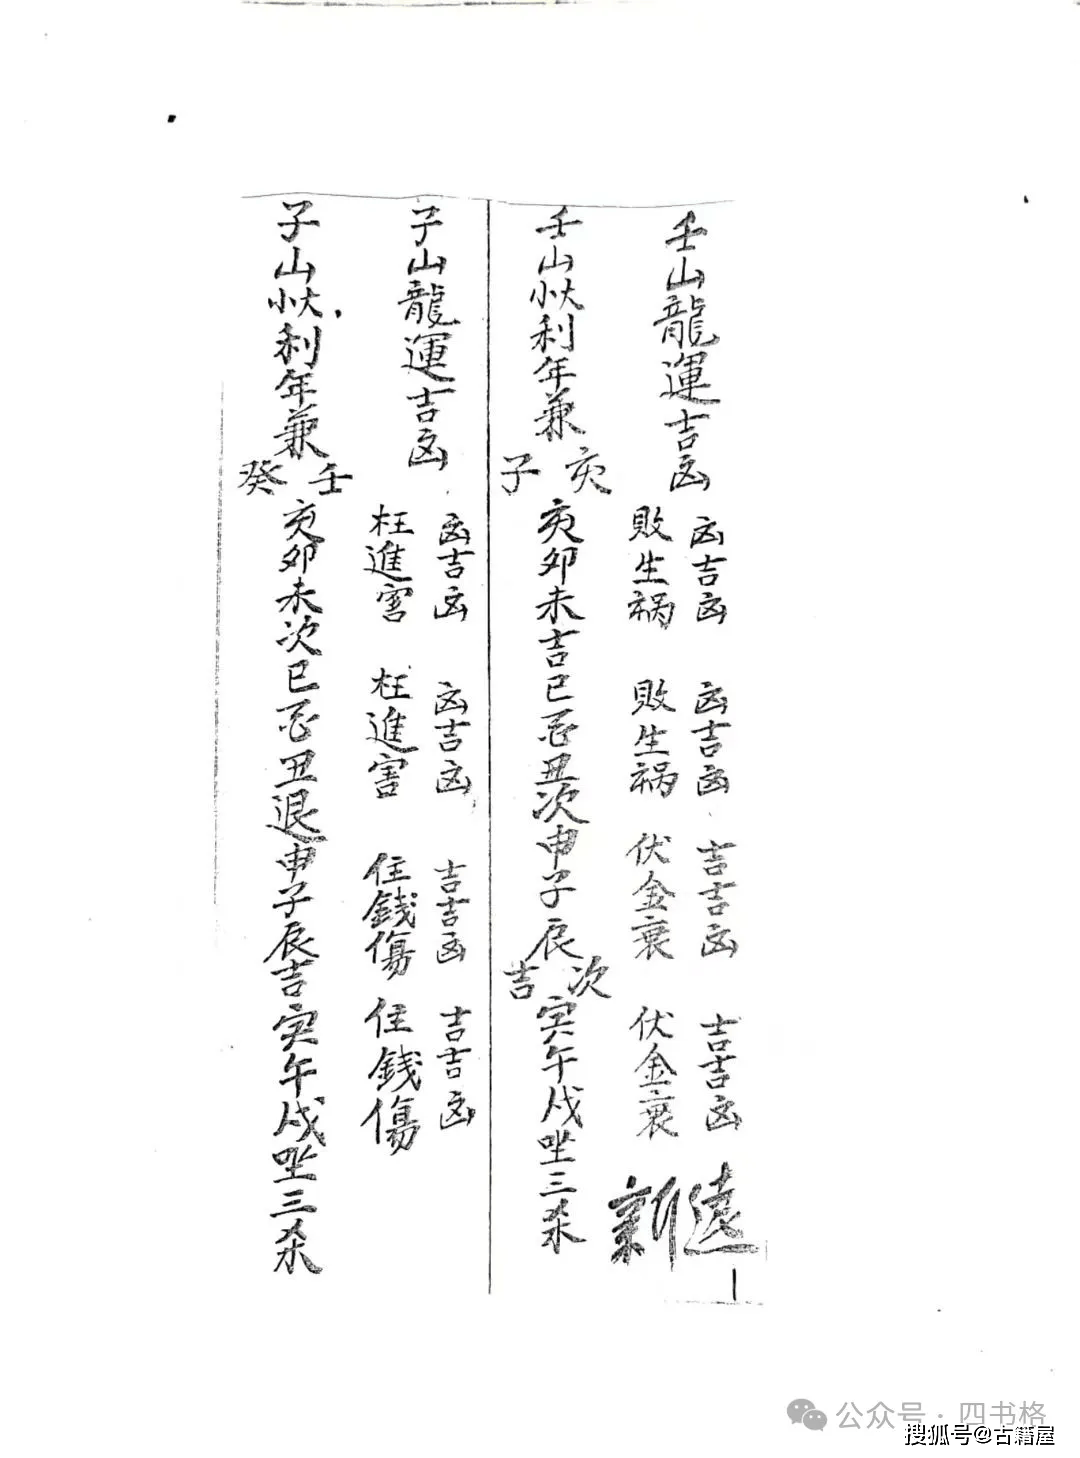 壬山龍運吉凶
凶吉凶 凶吉凶 吉吉凶 吉吉凶
敗生祸 敗生祸 伏金衰 伏金衰
遠
新
壬山大小利年兼
亥
子
亥卯未吉巳忌丑次申子辰
次
吉
寅午戌坐三杀
子山龍運吉凶
凶吉凶 凶吉凶 吉吉凶 吉吉凶
枉進害 枉進害 住錢傷 住錢傷
子山大小利年兼
壬
癸
亥卯未次巳忌丑退申子辰吉寅午戌坐三杀
公众号·四书格
搜狐号@古籍屋